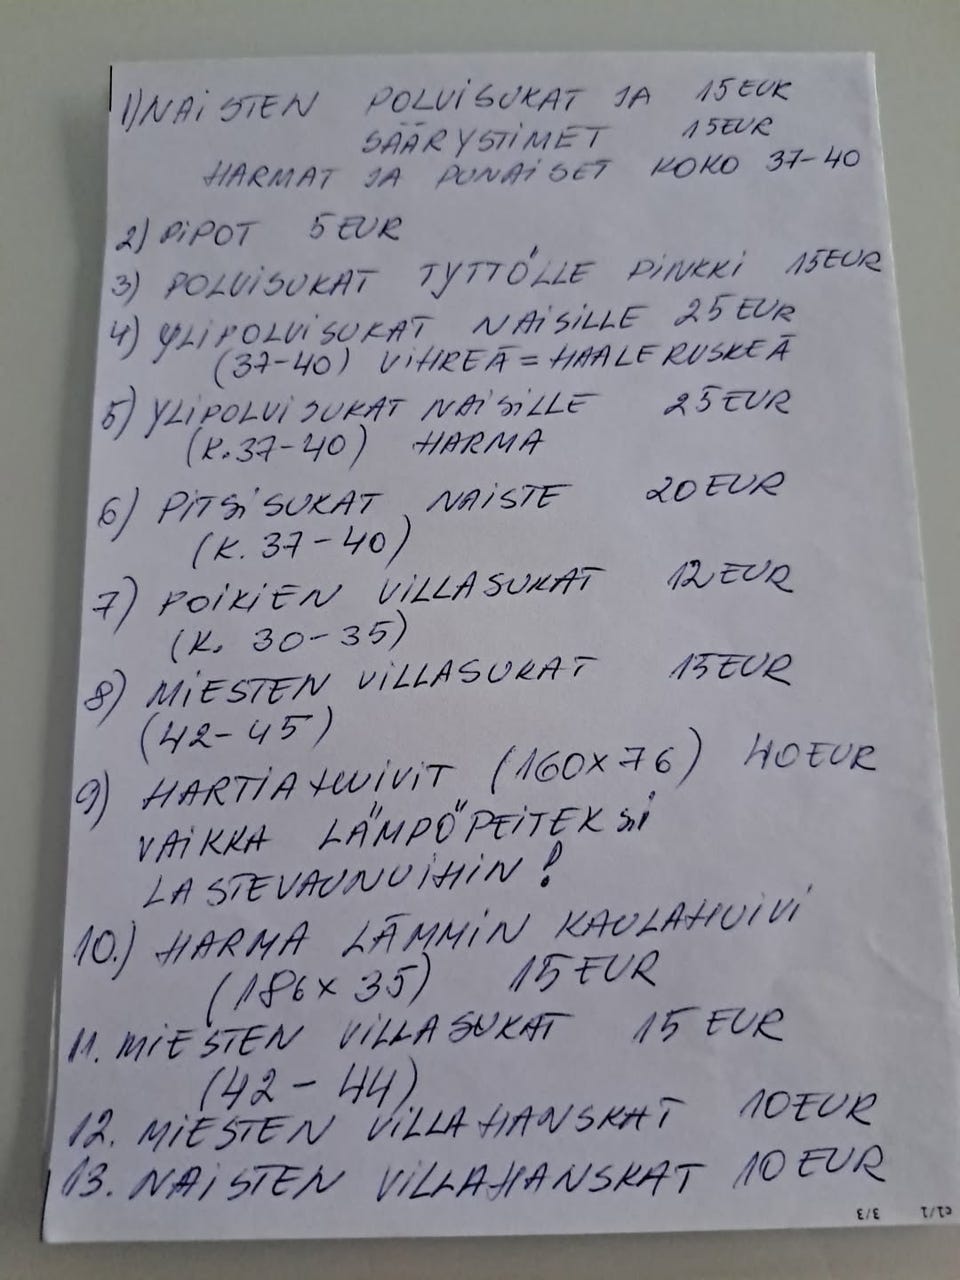 1) NAISTEN POLVISUKAT JA 15 EUR
SÄÄRYSTIMET 15 EUR
HARMAT JA PUNAISET KOKO 37-40
2) PIPOT 5 EUR
3) POLVISUKAT TYTTÖLLE PINKKI 15 EUR
4) YLIPOLVISUKAT NAISILLE 25 EUR
(37-40) VIHREÄ = HAALERUSKEÄ
5) YLIPOLVISUKAT NAISILLE 25 EUR
(K. 37-40) HARMA
6) PITSISUKAT NAISTE 20 EUR
(K. 37-40)
7) POIKIEN VILLASUKAT 12 EUR
(K. 30-35)
8) MIESTEN VILLASUKAT 15 EUR
(42-45)
9) HARTIAHUIVIT (160x76) 40 EUR
VAIKKA LÄMPÖPEITEKSII
LASTEVAUNUIHIN!
10.) HARMA LÄMMIN KAULAHUIVI
(186x35) 15 EUR
11. MIESTEN VILLASUKAT 15 EUR
(42-44)
12. MIESTEN VILLAHANSKAT 10 EUR
13. NAISTEN VILLAHANSKAT 10 EUR
3/3